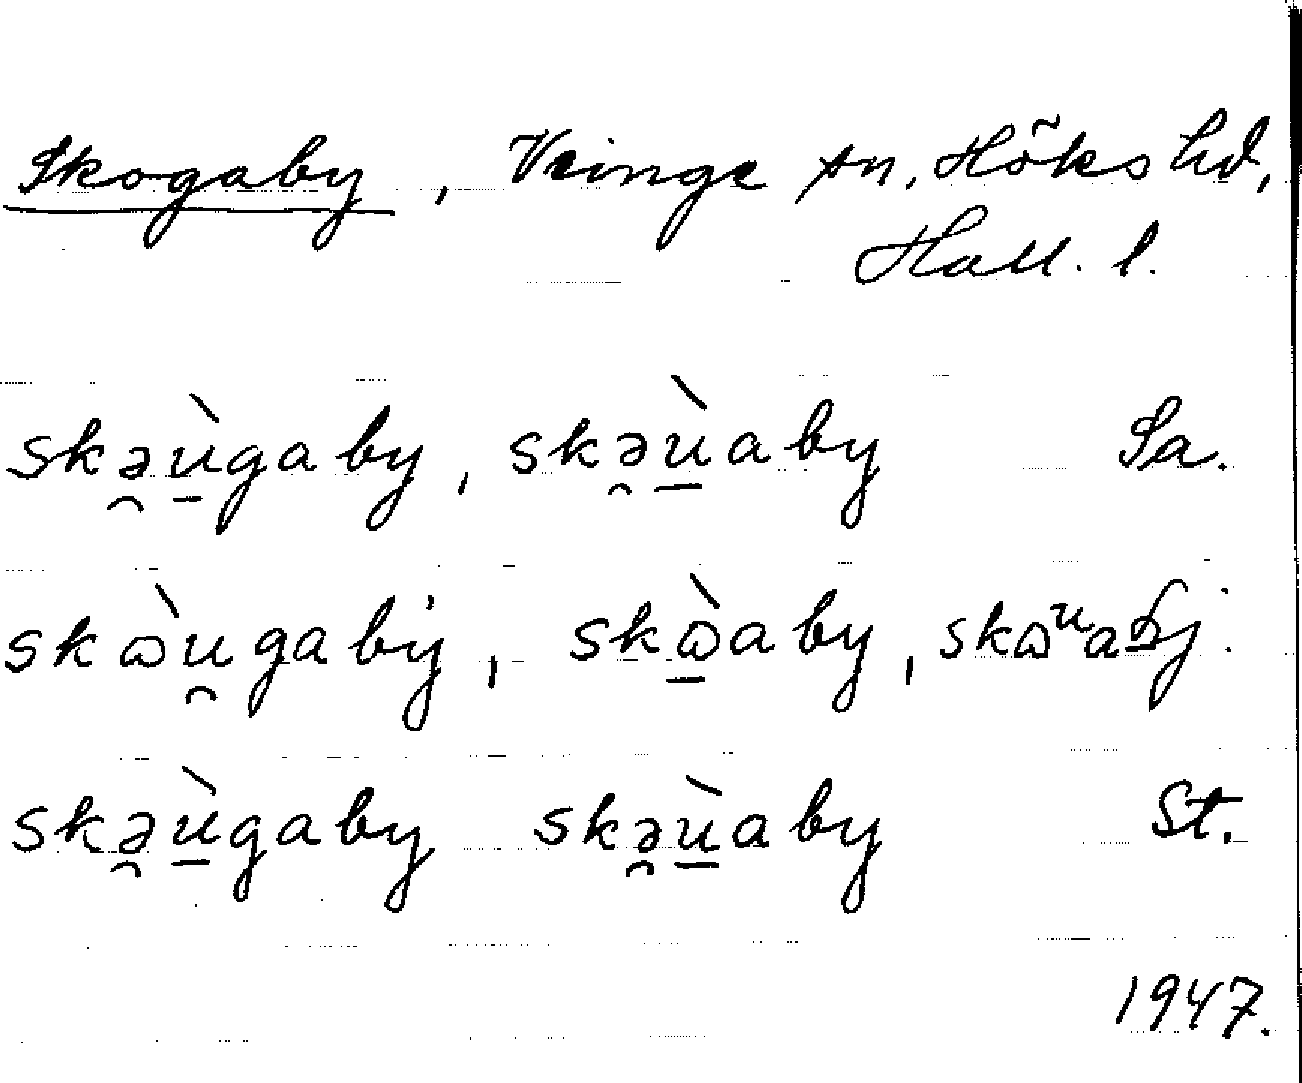 Skogaby, Veinge sn, Höks hd,
Hall. l.
skə̯ù̠gaby, skə̯ù̠aby Sa.
skɷ̀u̯gaby, skɷ̠̀aby,
skə̯ù̠gaby skə̯ù̠aby St.
1947.